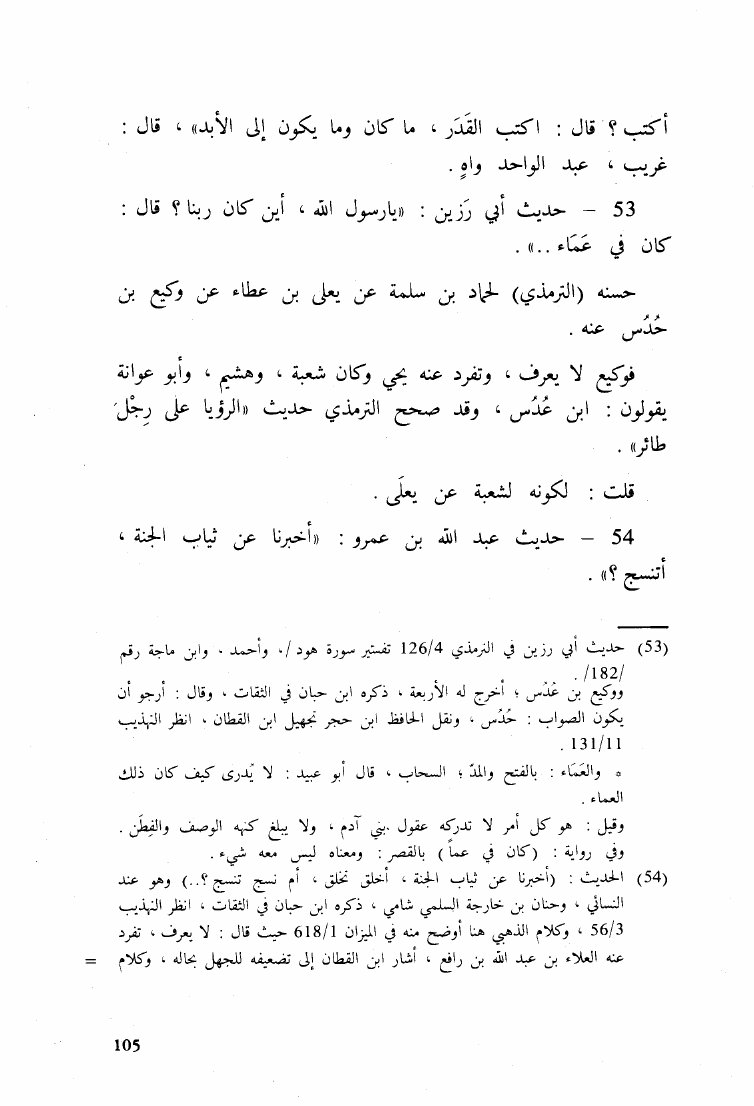 أكتب ؟ قال : اكتب القَدَر ، ما كان وما يكون إلى الأبد» ، قال :
غريب ، عبد الواحد واهٍ .
53 – حديث أبي رَزِين : «يارسول الله ، أين كان ربنا ؟ قال :
كان في عَمَاء ..» .
حسنه (الترمذي) لحماد بن سلمة عن يعلى بن عطاء عن وكيع بن
حُدُس عنه .
فوكيع لا يعرف ، وتفرد عنه يحي وكان شعبة ، وهشيم ، وأبو عوانة
يقولون : ابن عُدُس ، وقد صحح الترمذي حديث «الرؤيا على رِجْلَ
طائر» .
قلت : لكونه لشعبة عن يعلَى .
54 – حديث عبد الله بن عمرو : «أخبرنا عن ثياب الجنة ،
أتنسج ؟» .
(53) حديث أبي رزين في الترمذي 126/4 تفستير سورة هود /، وأحمد ، وابن ماجة رقم
/182/ .
ووكيع بن عُدُس ؛ أخرج له الأربعة ، ذكره ابن حبان في الثقات ، وقال : أرجو أن
يكون الصواب : حُدُس ، ونقل الحافظ ابن حجر تجهيل ابن القطان ، انظر التهذيب
131/11 .
* والعَمَاء : بالفتح والمدّ ؛ السحاب ، قال أبو عبيد : لا يُدرى كيف كان ذلك
العماء .
وقيل : هو كل أمر لا تدركه عقول بني آدم ، ولا يبلغ كنهه الوصف والفِطَن .
وفي رواية : (كان في عماً) بالقصر : ومعناه ليس معه شيء .
(54) الحديث : (أخبرنا عن ثياب الجنة ، أخلق تخلق ، أم نسج تنسج ؟..) وهو عند
النسائي ، وحنان بن خارجة السلمي شامي ، ذكره ابن حبان في الثقات ، انظر التهذيب
56/3 ، وكلام الذهبي هنا أوضح منه في الميزان 618/1 حيث قال : لا يعرف ، تفرد
عنه العلاء بن عبد الله بن رافع ، أشار ابن القطان إلى تضعيفه للجهل بحاله ، وكلام =
105